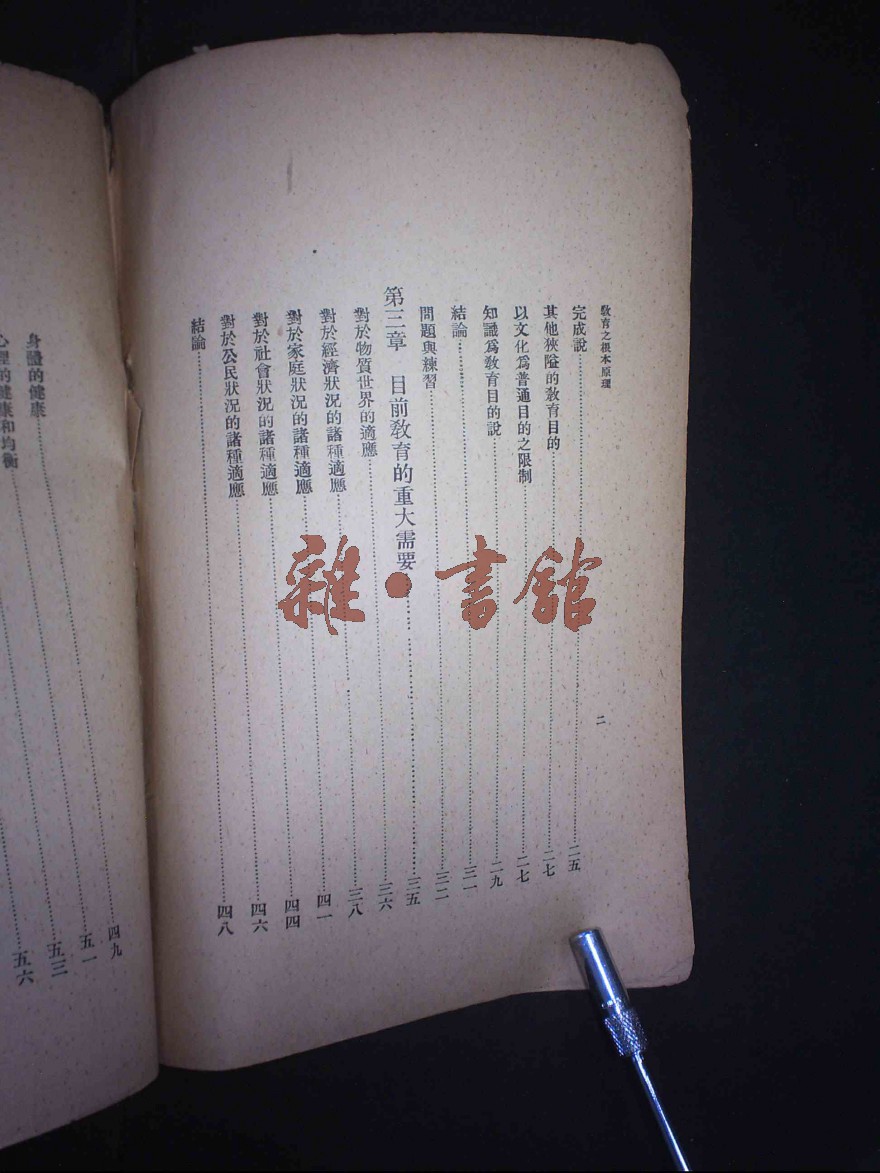 教育之根本原理 二
完成說 二五
其他狹隘的教育目的 二七
以文化爲普通目的之限制 二七
知識爲教育目的說 二九
結論 三一
問題與練習 三二
第三章 目前教育的重大需要 三五
對於物質世界的適應 三六
對於經濟狀況的諸種適應 三八
對於家庭狀況的諸種適應 四一
對於社會狀況的諸種適應 四四
對於公民狀況的諸種適應 四六
結論 四八
身體的健康 四九
心理的健康和均衡 五一
五三
五六
雜·書館